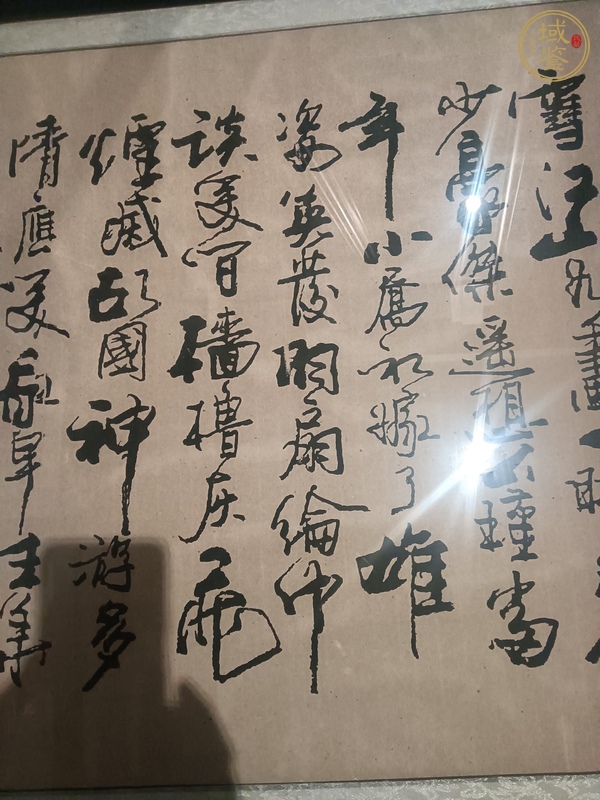 雪江山如畫一時多
少豪傑遥想公瑾當
年小喬初嫁了雄
姿英發羽扇綸巾
談笑间檣櫓灰飛
煙滅故國神游多
情應笑我早生華
域鉴